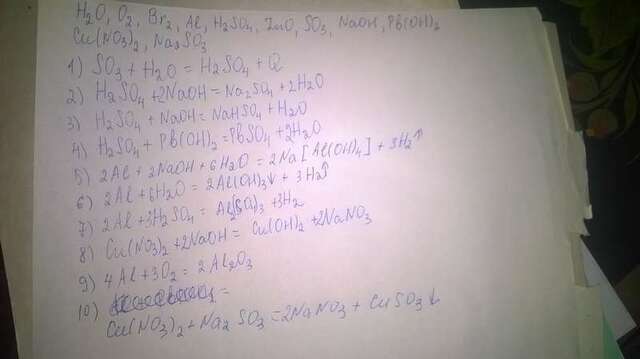 H₂O, O₂, Br₂, Al, H₂SO₄, ZnO, SO₃, NaOH, Pb(OH)₂
Cu(NO₃)₂, Na₂SO₃
1) SO₃ + H₂O = H₂SO₄ + Q
2) H₂SO₄ + 2NaOH = Na₂SO₄ + 2H₂O
3) H₂SO₄ + NaOH = NaHSO₄ + H₂O
4) H₂SO₄ + Pb(OH)₂ = PbSO₄ + 2H₂O
5) 2Al + 2NaOH + 6H₂O = 2Na[Al(OH)₄] + 3H₂↑
6) 2Al + 6H₂O = 2Al(OH)₃↓ + 3H₂↑
7) 2Al + 3H₂SO₄ = Al₂(SO₄)₃ + 3H₂
8) Cu(NO₃)₂ + 2NaOH = Cu(OH)₂ + 2NaNO₃
9) 4Al + 3O₂ = 2Al₂O₃
10) =
Cu(NO₃)₂ + Na₂SO₃ = 2NaNO₃ + CuSO₃↓